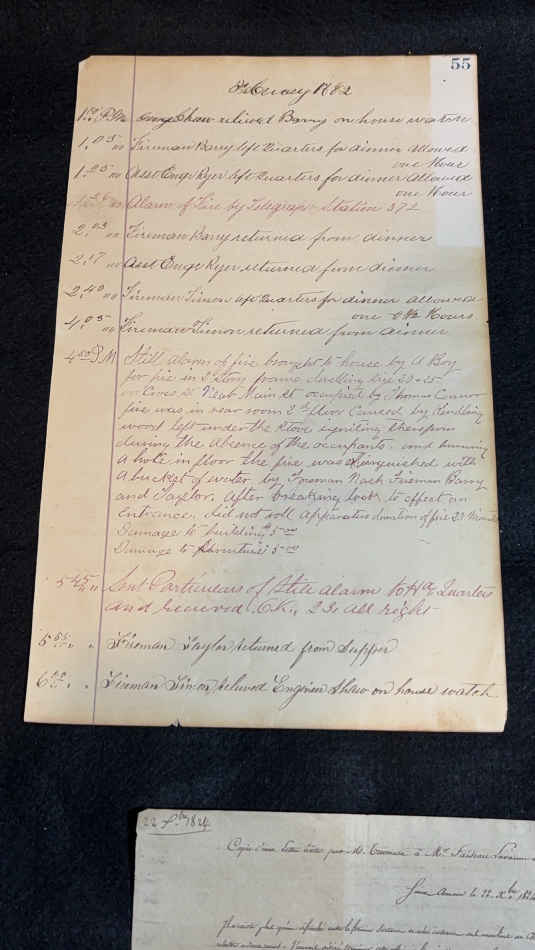 55
February 1882
1.00 P.M. Engr Shaw relieved Barry on house watch
1.05 " Fireman Barry left Quarters for dinner allowed
one Hour
1.25 " Asst Engr Ryer left Quarters for dinner allowed
one Hour
" Alarm of Fire by Telegraph Station 372
2.03 " Fireman Barry returned from dinner
2.17 " Asst Engr Ryer returned from dinner
2.40 " Fireman Timon left Quarters for dinner allowed
one Hours
4.05 " Fireman Timon returned from dinner
4.50 P.M Still alarm of fire brought to house by a Boy
for fire in 2 story frame dwelling size 20 x 25
on Lines St Near Main St occupied by Thomas Connor
fire was in rear room 2d floor Caused by Kindling
wood left under the stove igniting therefrom
during the absence of the occupants. and burning
a hole in floor the fire was extinguished with
a bucket of water by Foreman Nash Fireman Barry
and Taylor. after breaking lock to effect an
entrance. did not roll apparatus duration of fire 20 Minutes
Damages to building $5.00
Damage to furniture 5.00
5.45 " Sent Particulars of Still alarm to Hd Quarters
and received O.K., 23 all right
5.55 " Fireman Taylor returned from Supper
6.00 " Fireman Timon relieved Engineer Shaw on house watch
22 1824
Copie d'une lettre par M. à Mr
le 22